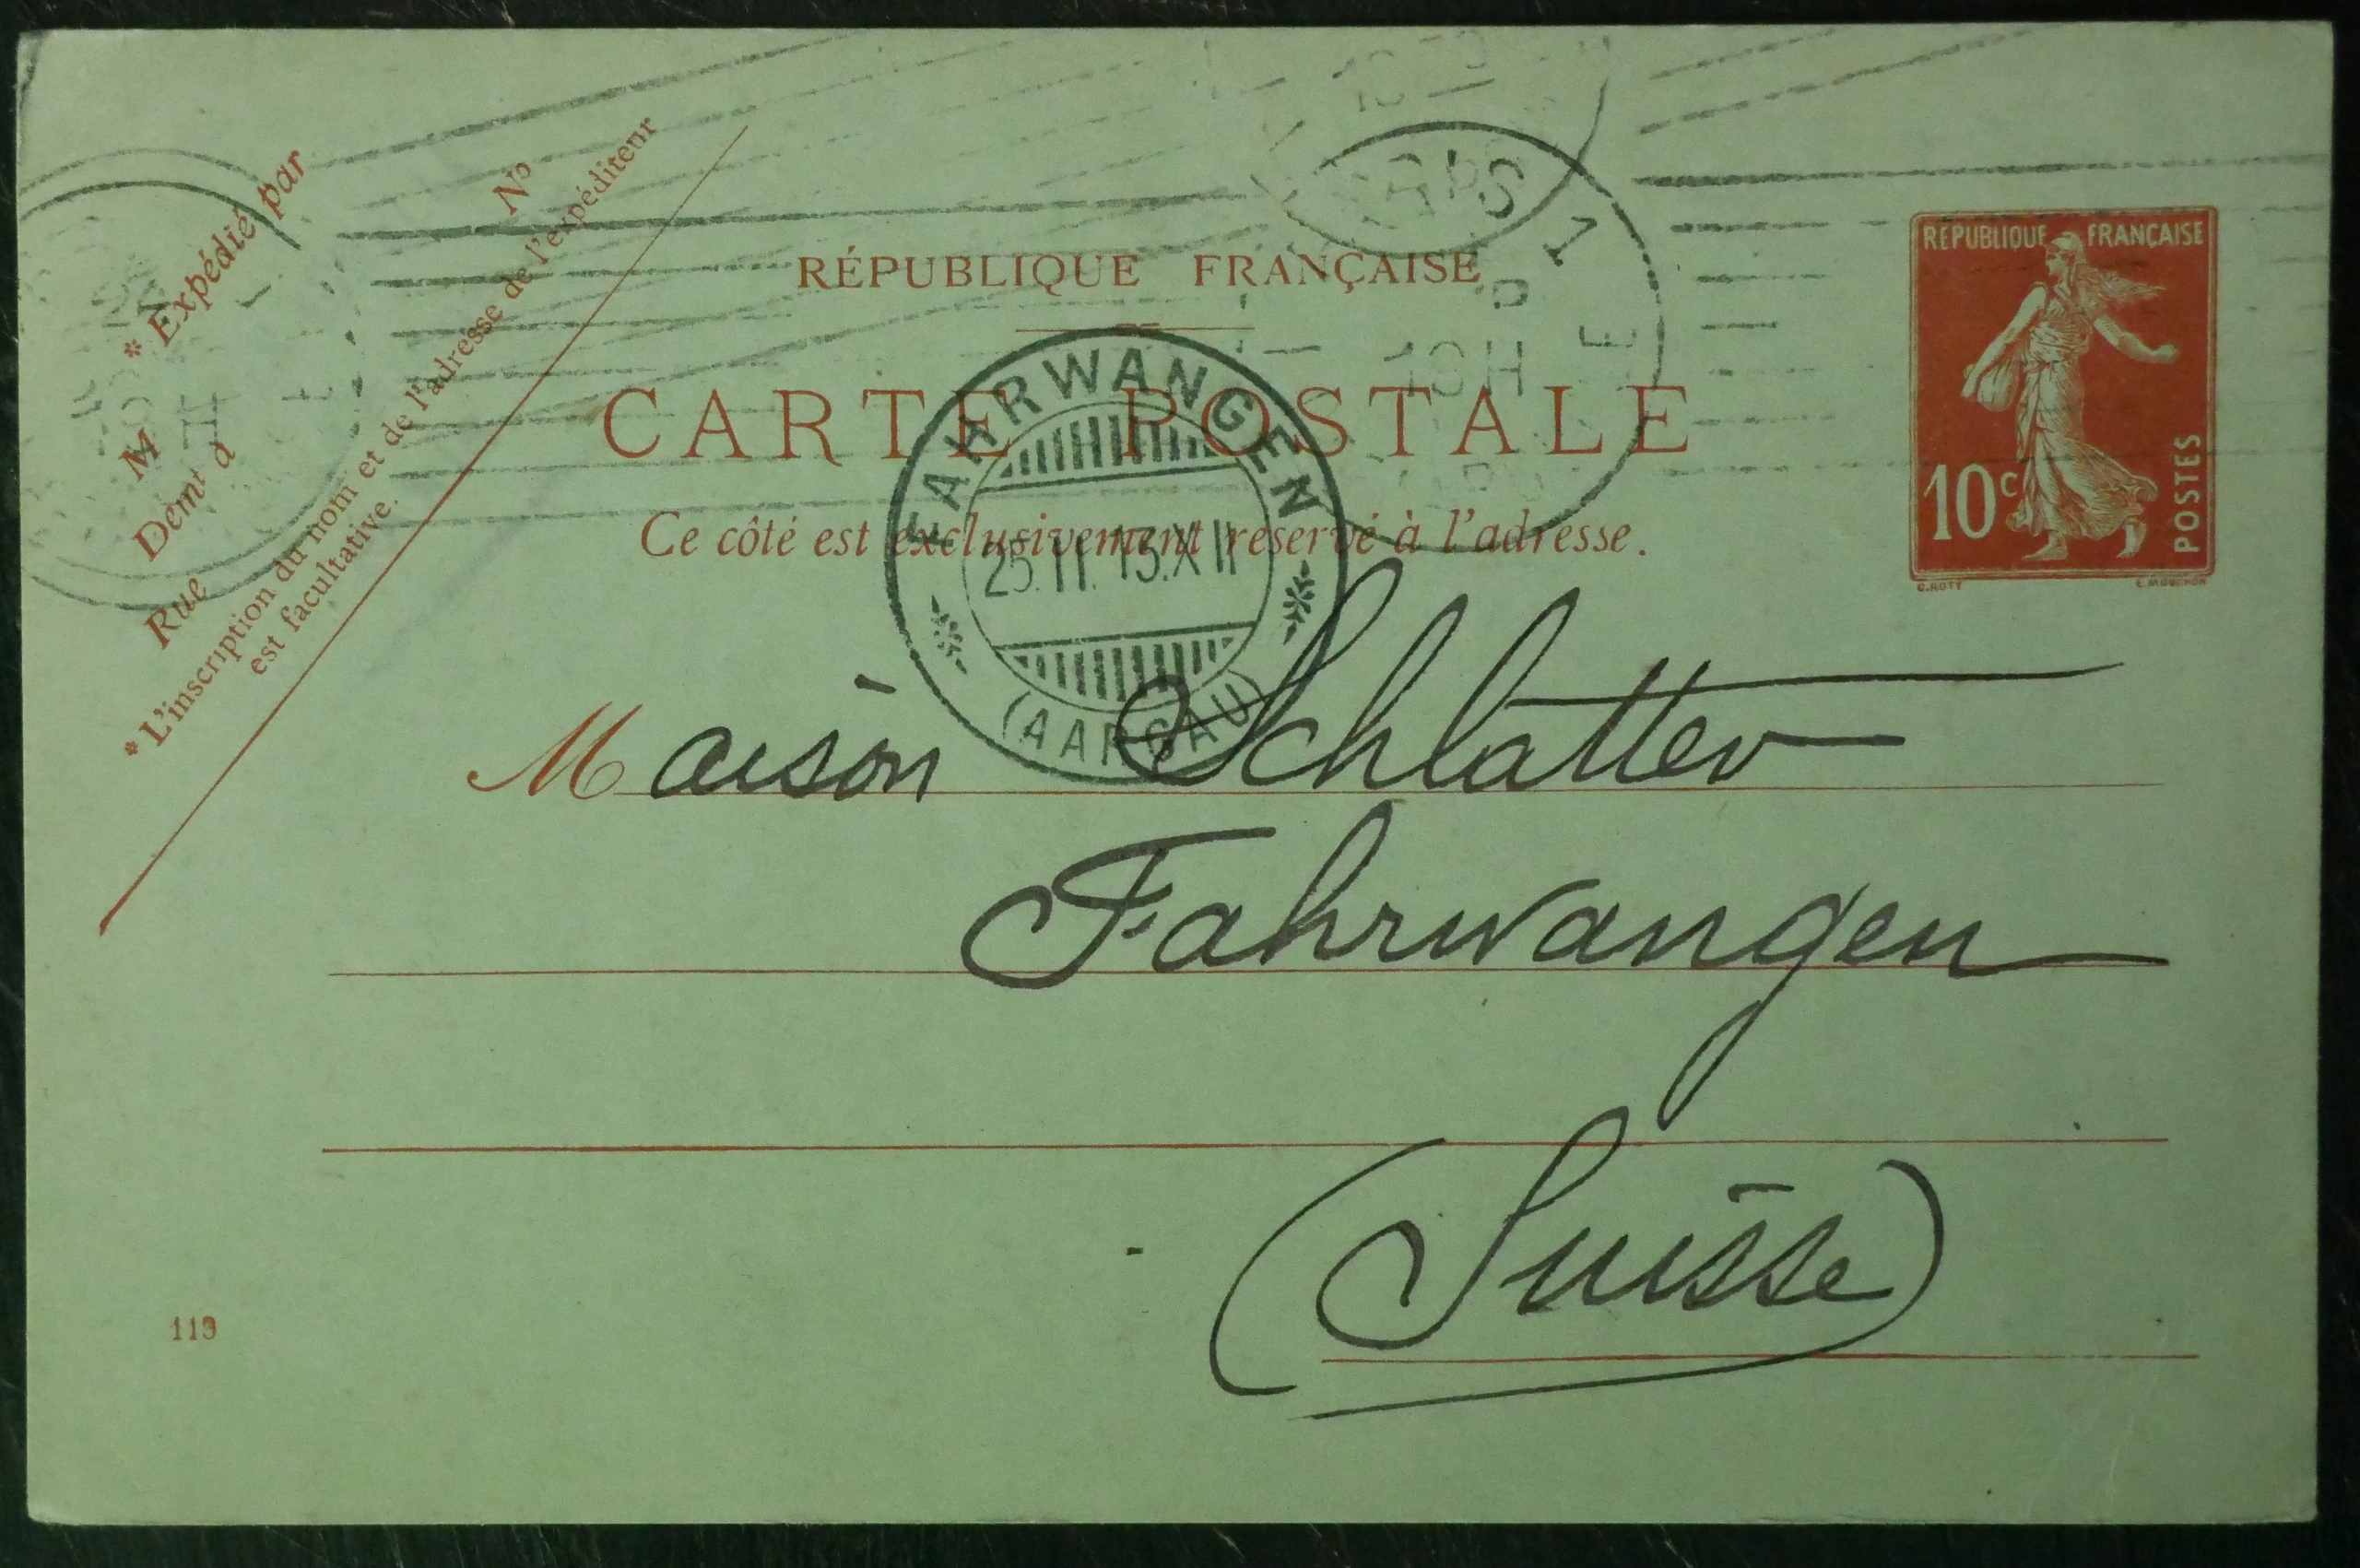 * Expédié par
M
Demt à
Rue
No
* L'inscription du nom et de l'adresse de l'expéditenr
est facultative.
PARIS 1
RÉPUBLIQUE FRANÇAISE
CARTE POSTALE
Ce côté est exclusivement réservé à l'adresse.
RÉPUBLIQUE FRANÇAISE
10c
POSTES
O.ROTY E.MOUCHON
FAHRWANGEN
25.II.13.XII
(AARGAU)
Maison Schlatter
Fahrwangen
(Suisse)
119